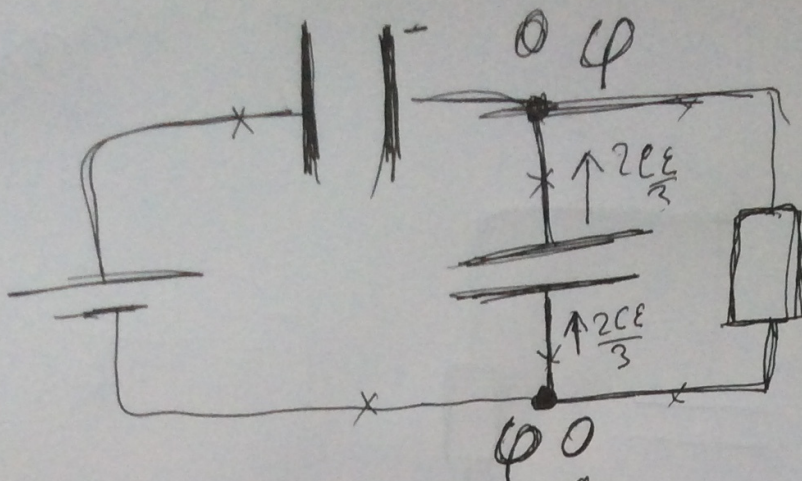 -
0 φ
↑ 2CE/3
↑ 2CE/3
φ 0